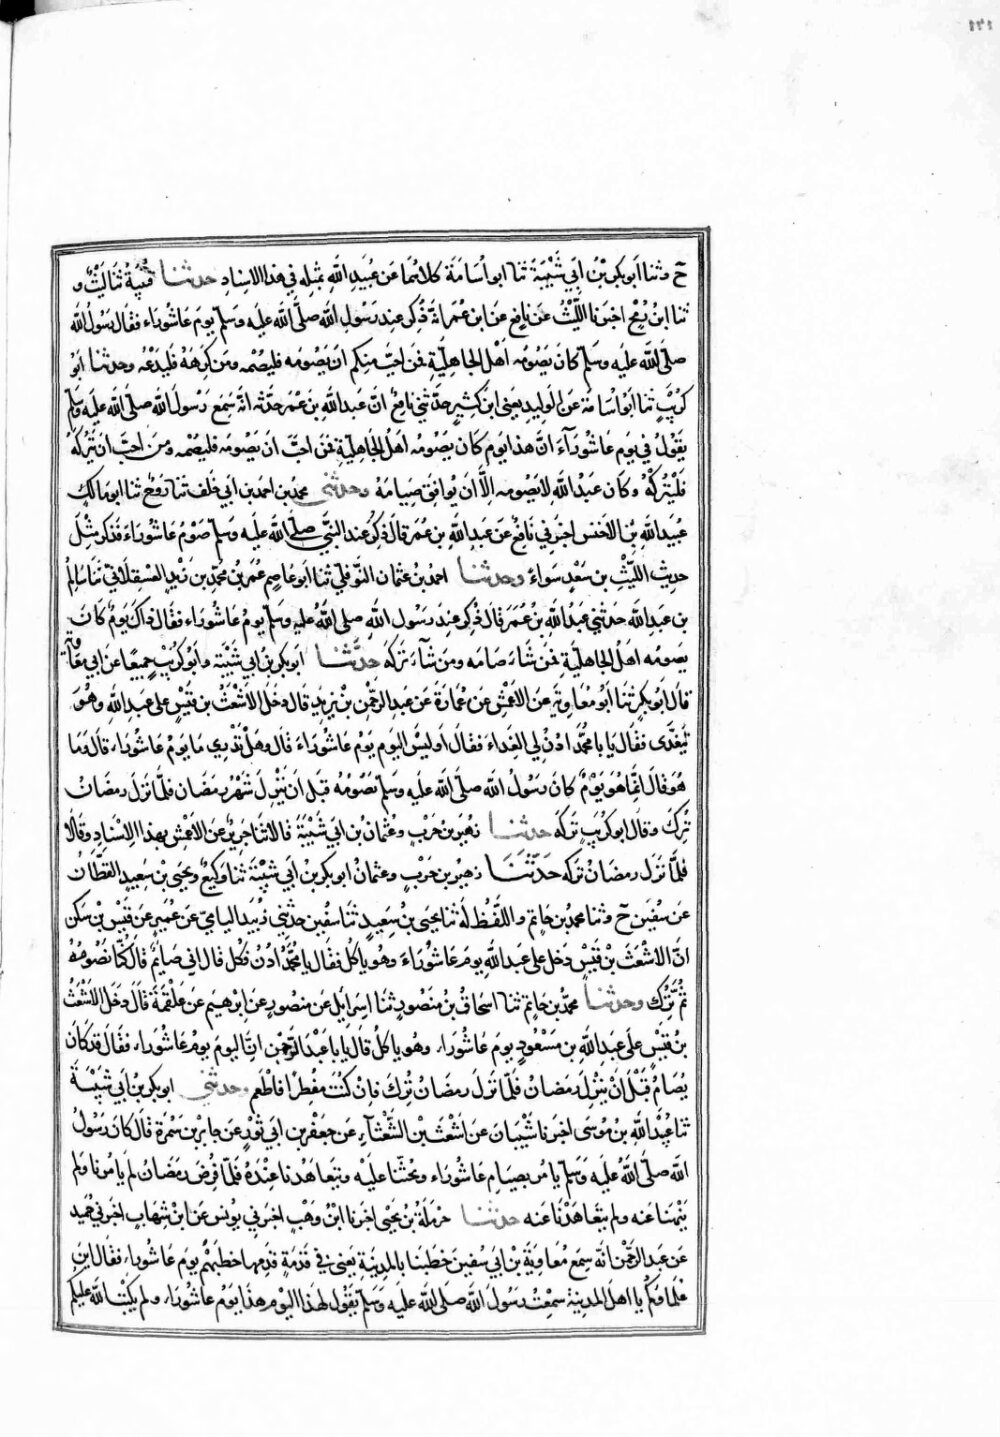 ١٢١
ح وثنا ابو بكر بْنُ اَبِي شَيْبَةَ ثنا ابو اُسَامَةَ كلاهُمَا عَن عُبَيدِ اللهِ بمثلِه فِي هذا الاسناد حدثنا قُتَيبَةُ ثنا لَيْثٌ و
ثنا ابنُ رُمْحٍ اخبَرَنَا اللَّيْثُ عَن نَافِعٍ عَن ابن عُمَرَ انّهُ ذُكِرَ عندَ رَسُولِ اللَّه صَلَّى اللَّهُ عَلَيه وَسَلّمَ يومُ عَاشُورَاء فقال رَسُولُ اللَّه
صلى اللَّه عَلَيه وسَلّم كان يَصُومُه اَهْلُ الجاهِلِيَّةِ فمن احبّ منكم ان يَصُومَه فليَصُمْه ومَن كرِهَهُ فَليَدَعْهُ وحدثنا ابو
كرَيْبٍ ثنا ابو اسَامَةَ عَن الوليد يعنى ابن كثيرٍ حدّثني نافِعٌ انّ عَبدَ اللَّه بن عُمَر حَدّثه انّه سَمِعَ رَسُولَ اللَّه صلى اللَّه عَلَيه وسَلّم
يَقُولُ في يَومِ عَاشُورَآءَ انّ هذا يَوم كَانَ يَصُومُه اهلُ الجَاهِليّةِ فمن احبّ ان يَصُومَه فليَصُمْه ومن احبّ ان يَتْرُكَهُ
فَليَتْركْهُ وكان عبدُ اللَّه لا يَصُومُه الاّ ان يُوَافِقَ صِيَامَه وحدثني محمد بن احمد بن ابي خلف ثنا رَوْحٌ ثنا ابو مَالكٍ
عُبَيدُ اللَّه بن الاَخنس اخبرني نَافِعٌ عَن عَبدِ اللَّه بن عُمَرَ قال ذُكِرَ عند النبِّي صلى اللَّه عَلَيه وسَلّم صَومُ عَاشُورَاءَ فَذَكر مِثْلَ
حديث اللّيْثِ بن سَعْدٍ سَوَاءً وحدثنا احمدُ بن عُثمانَ النّوفلي ثنا ابو عَاصِمٍ عُمَرُ بن محمّد بن زَيْدٍ العَسْقلاني ثنا سَالِمُ
بن عَبد اللَّه حدثني عَبدُ اللَّه بنُ عُمَرَ قال ذُكِرَ عِندَ رَسُول اللَّه صلى اللَّهُ عليه وسَلّم يومُ عَاشُورَاء فقال ذاكَ يَومٌ كانَ
يصومُه اهلُ الجاهليّةِ فمن شاءَ صَامَه ومن شاءَ تركَه حدّثنا ابو بكر بن ابي شيبة وابو كُرَيْبٍ جميعًا عن ابي مُعَاوِيَةَ
قال ابو بكرٍ ثنا ابو مُعَاوِيَةَ عَنِ الاعْمَشِ عن عُمَارَةَ عَن عبدِ الرّحمن بن يَزِيدَ قال دخَلَ الاَشْعَثُ بن قَيْسٍ على عَبدِ اللَّهِ وَهُوَ
يَتَغدّى فقال يا با محمّد ادْنُ اِلى الغداء فقال اَو ليس اليوم يَوم عَاشُورَاءَ قال وهَلْ تدْرِي مَا يَومُ عاشُورَاء قال وَمَا
هُوَ قال انّما هُوَ يَوْمٌ كانَ رَسُولُ اللَّه صَلّى اللَّه عَلَيه وَسَلّم يَصُومُه قبلَ اَنْ يَنْزِلَ شهرُ رَمَضَان فلمّا نَزَل رمضَان
تُرِكَ وقال ابو كُرَيبٍ تركه حدثنا زهَير بن حَربٍ وعُثمان بن ابي شَيْبَةَ قالا ثنا جَرِيرٌ عَنِ الاعْمَش بهذا الاِسْنادِ وقالا
فلمّا نزَل رمضان تركه حَدّثَنَا زهَير بن حَربٍ وعثمان ابو بكر بن ابي شيْبَة ثنا وكيعٌ ويحيى بن سَعِيدٍ القطّان
عَن سُفين ح وثنا محمد بن حَاتِم واللّفْظُ له ثنا يحيى بن سَعِيدٍ ثنا سفين حدثني زبَيد اليامي عَن عُمَير عَن قَيْسِ بن سَكن
انّ الاَشْعَثَ بن قَيْسٍ دَخل على عَبدِ اللَّه يومَ عَاشُورَاءَ وهو ياكل فقال يا محمّد ادْنُ فكُل قال اني صَايمٌ قال كنّا نَصُومُه
ثم تُرِك وحدثنا محمّد بن حَاتِم ثنا اسحاق بن مَنصُورٍ ثنا اسرَايل عَن منصور عَن ابرهيم عَن علقمة قال دَخَلَ الاَشْعَثُ
بنُ قَيسٍ على عَبدِ اللَّه بن مَسْعُودٍ يومَ عَاشُورَاء وهو ياكل قال يا با عَبدَ الرّحمن ان اليوم يومُ عَاشُورَاء فقال قد كان
يُصَامُ قَبْلَ اَنْ ينزِلَ رَمَضَان فلمّا نَزَلَ رمضانُ تُرِكَ فان كُنتَ مُفْطِرًا فاطعَم وحدثني ابو بكر بن اَبي شَيْبَةَ
ثنا عُبَيدُ اللَّه بن مُوسَى اخبَرَنا شَيْبَان عَن اَشعَثَ بن الشّعْثَآءِ عن جَعْفَرِ بن ابي ثَوْرٍ عَن جابِر بن سَمُرة قال كانَ رَسُولُ
اللَّه صَلى اللَّه عَلَيه وَسَلّم يامُر بصِيَامِ عَاشُورَاء ويحثّنا عليه ويتعَاهَدُنا عِنْدَهُ فلمّا فُرِضَ رَمَضَانُ لم يَامُرنا ولم
ينهنا عَنه ولم يتعَاهَدْنا عَنه حدثنا حَرمَلَةُ بن يحيى اخبَرنا ابنُ وَهْبٍ اخبَرَني يونس عَن ابن شِهَابٍ اخبَرني حُميد
عَن عبد الرّحمن انّه سَمِعَ مُعَاوِيَةَ بنَ ابي سُفينَ خَطيبًا بالمدِينَةِ يَعنى في قَدْمَةٍ قَدِمها خطَبَهُم يومَ عَاشُورَاء فقال اين
عُلماؤكم يا اهلَ المدِينة سمِعْتُ رَسُولَ اللَّه صلى اللَّه عَلَيه وَسَلّم يَقُول لهذا اليَوم هذا يَوْمُ عَاشُورَاء ولم يكتُب اللَّه عليكم